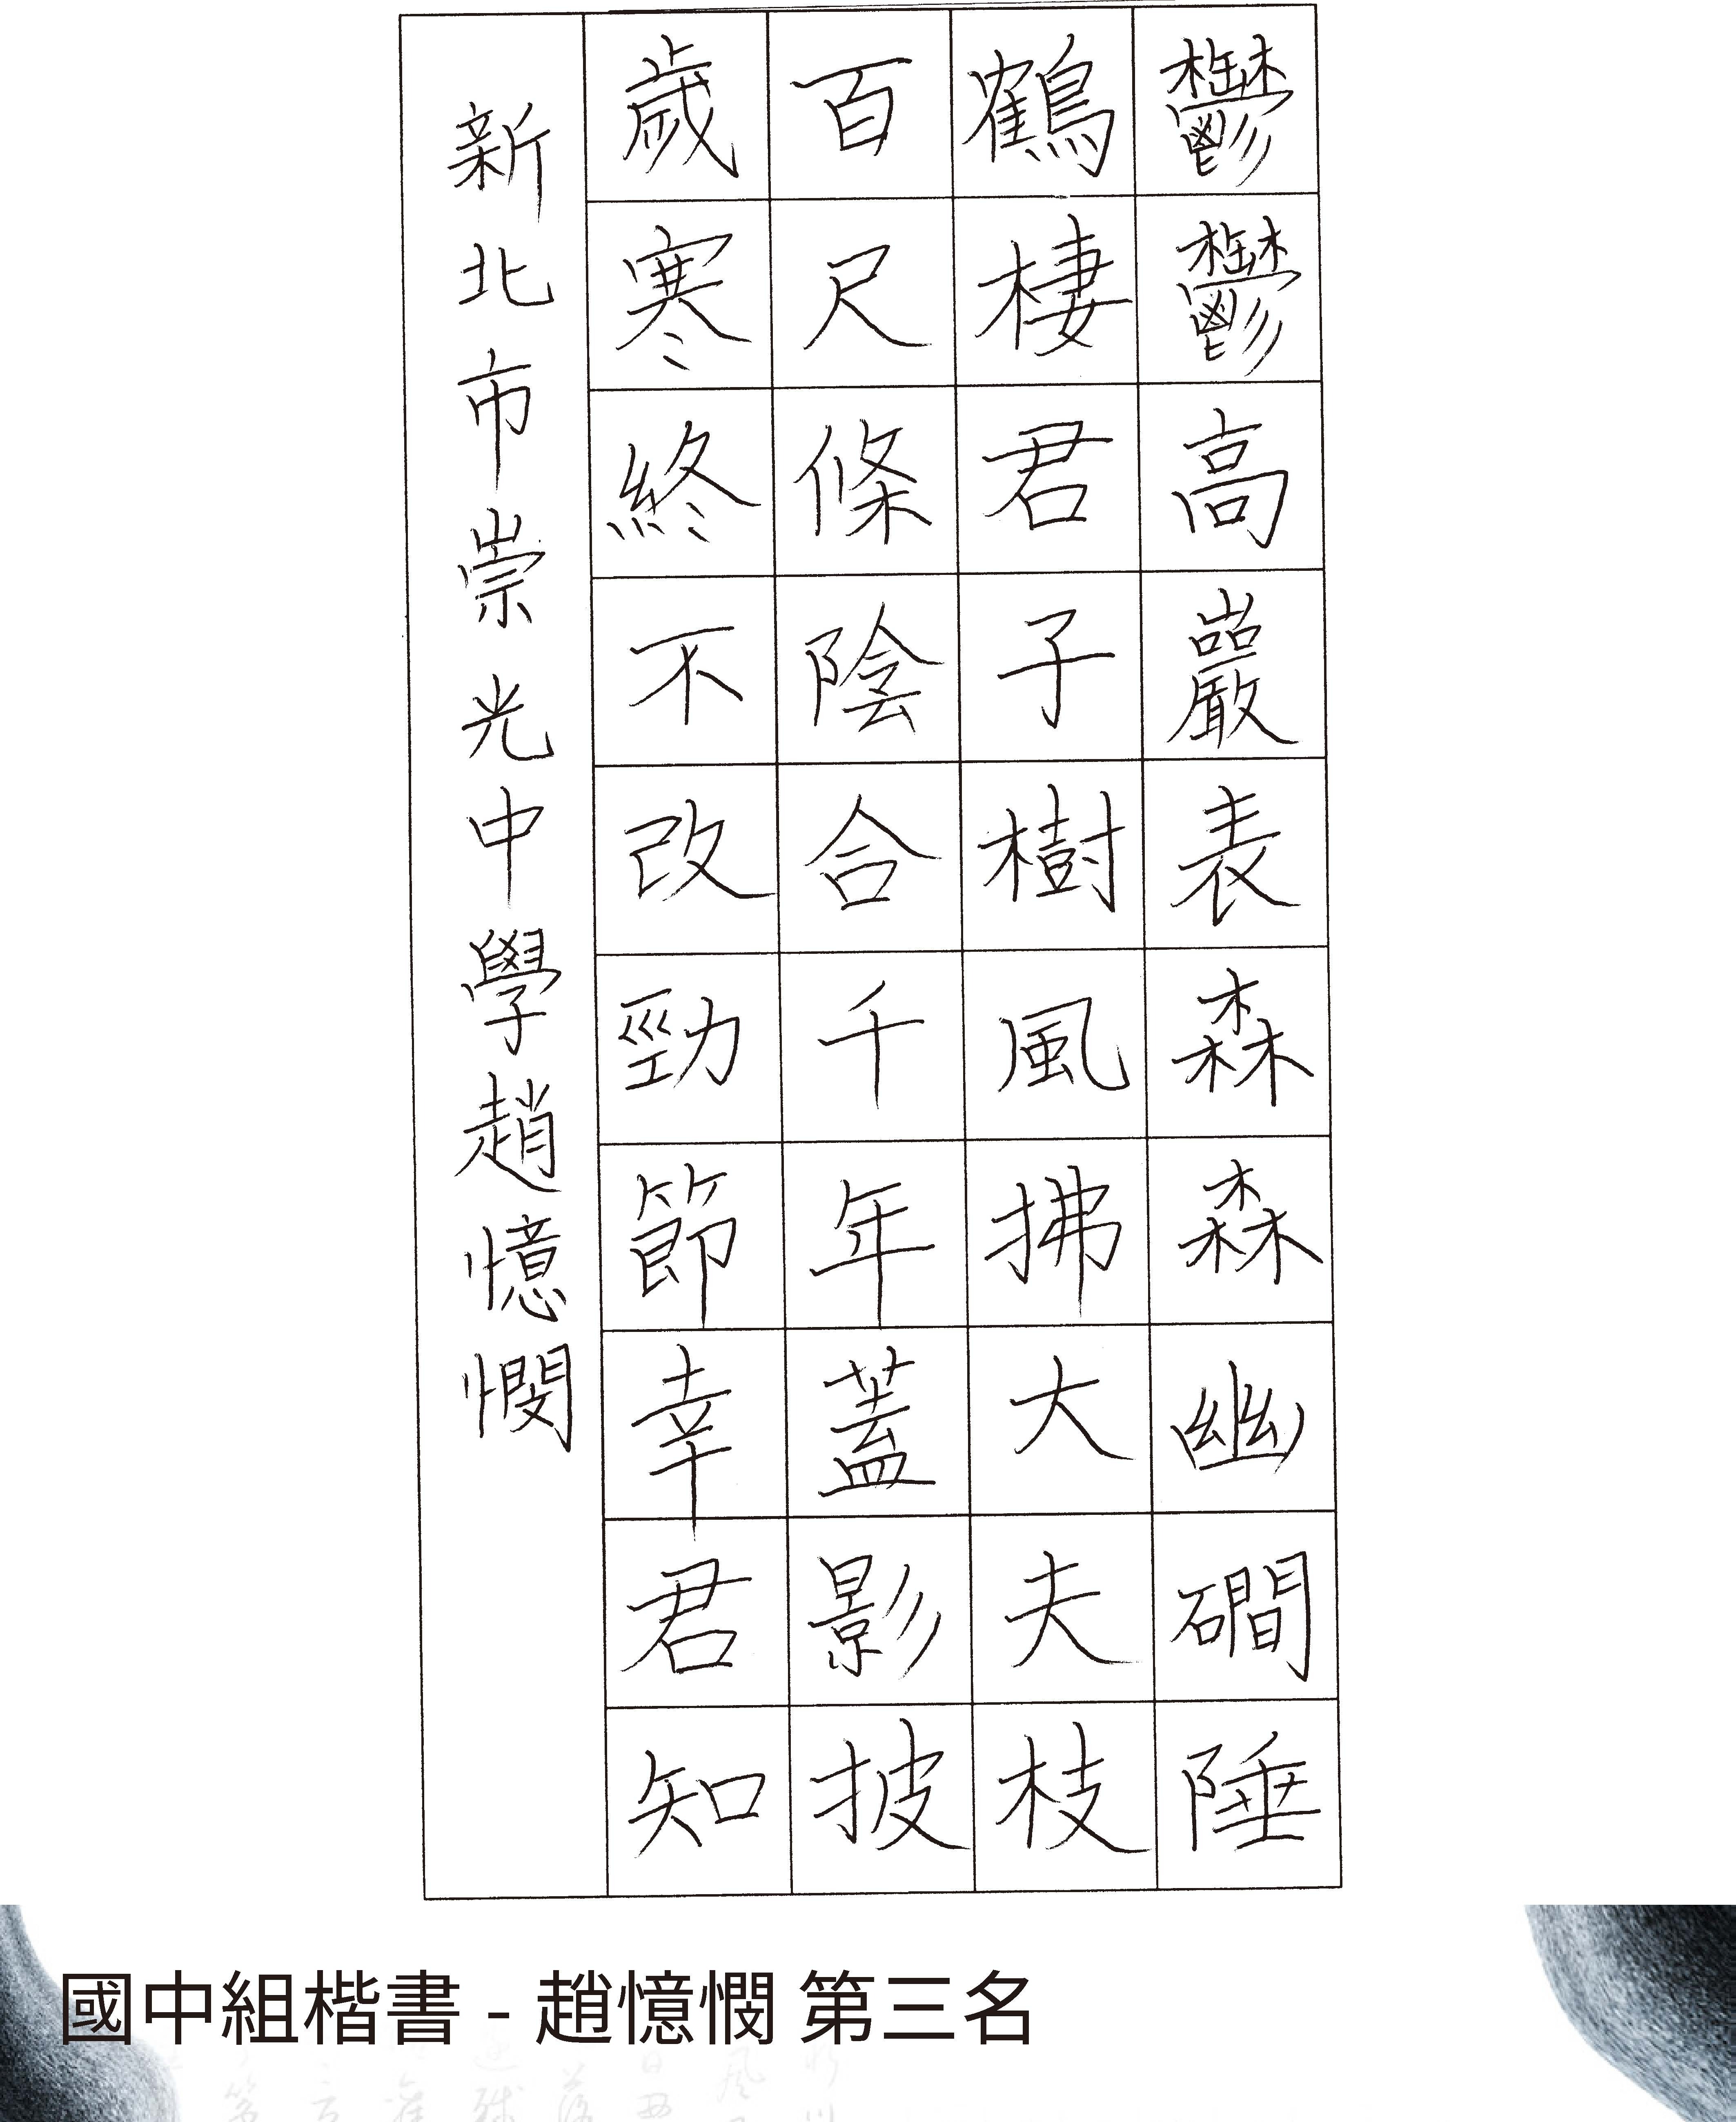 鬱鬱高巖表森森幽磵陲
鶴棲君子樹風拂大夫枝
百尺條陰合千年蓋影披
歲寒終不改勁節幸君知
新北市崇光中學趙憶憫
國中組楷書 - 趙憶憫 第三名